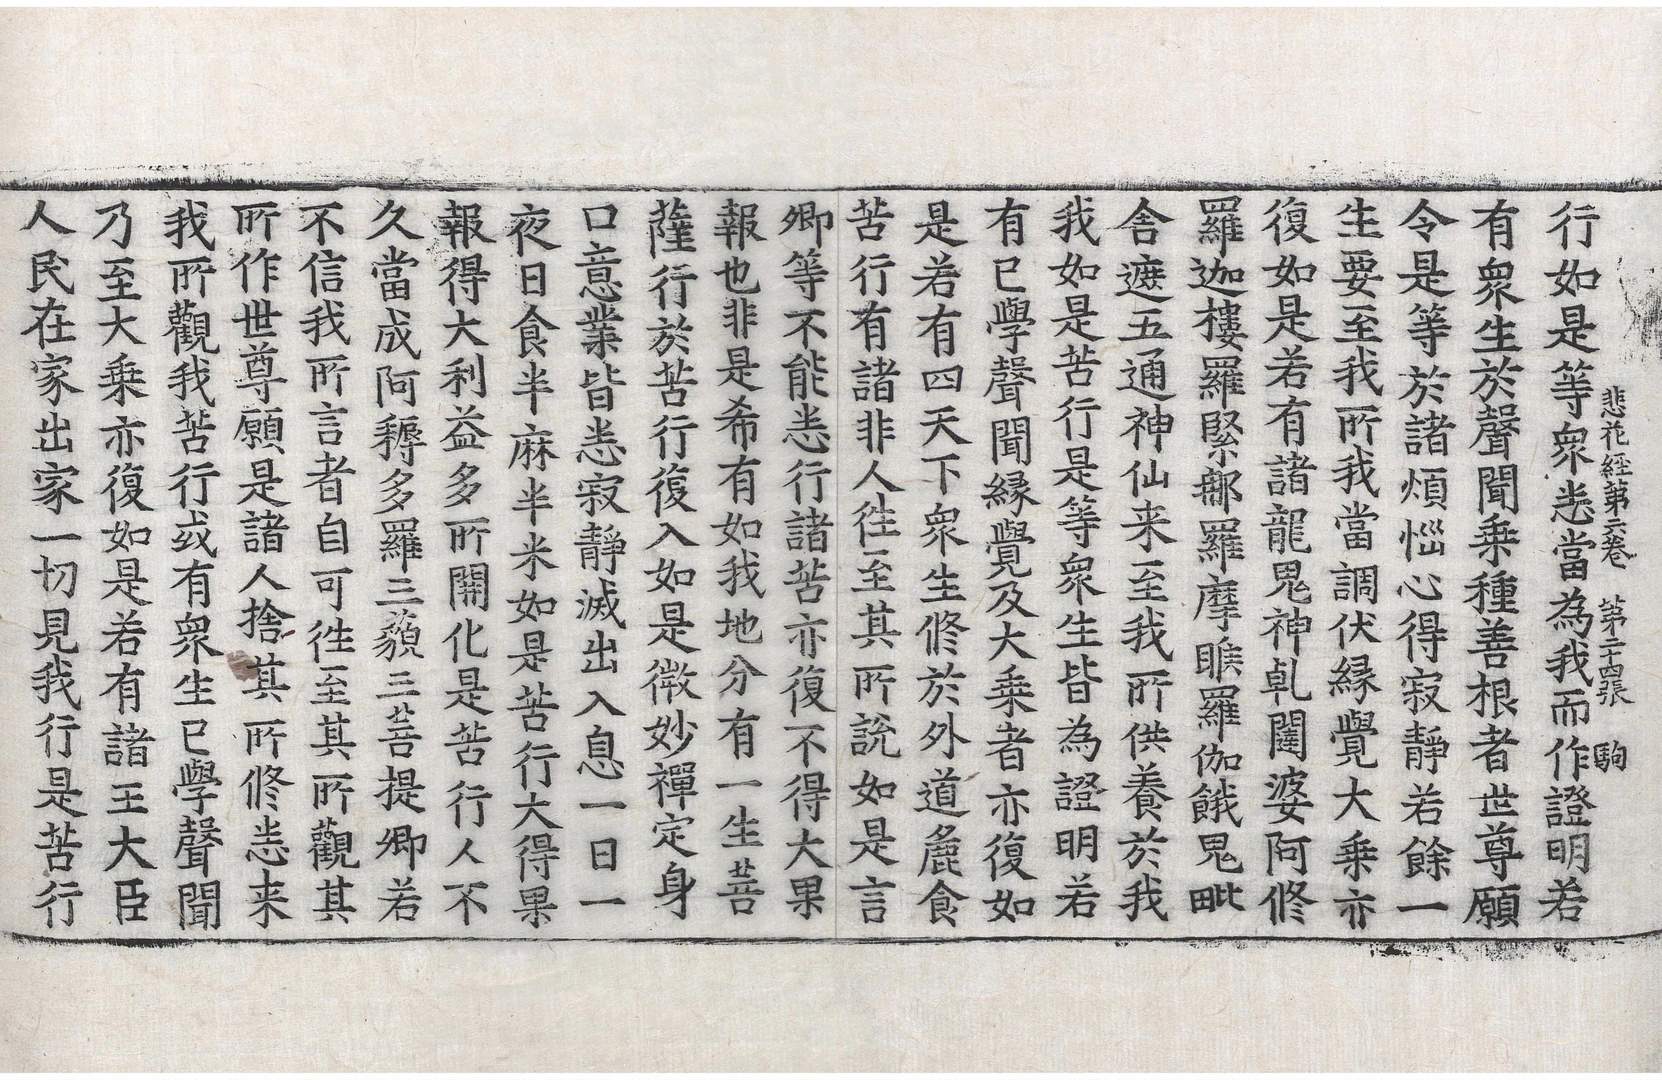 悲花經第六卷 第二十四張 駒
行如是等衆悉當為我而作證明若
有衆生於聲聞乗種善根者世尊願
令是等於諸煩惱心得寂靜若餘一
生要至我所我當調伏縁覺大乗亦
復如是若有諸龍鬼神乹闥婆阿修
羅迦樓羅緊那羅摩睺羅伽餓鬼毗
舎遮五通神仙来至我所供養於我
我如是苦行是等衆生皆為證明若
有已學聲聞縁覺及大乗者亦復如
是若有四天下衆生修於外道麁食
苦行有諸非人徃至其所說如是言
卿等不能悉行諸苦亦復不得大果
報也非是希有如我地分有一生菩
薩行於苦行復入如是微妙禪定身
口意業皆悉寂靜滅出入息一日一
夜日食半麻半米如是苦行大得果
報得大利益多所開化是苦行人不
久當成阿耨多羅三藐三菩提卿若
不信我所言者自可徃至其所觀其
所作世尊願是諸人捨其所修悉来
我所觀我苦行或有衆生已學聲聞
乃至大乗亦復如是若有諸王大臣
人民在家出家一切見我行是苦行